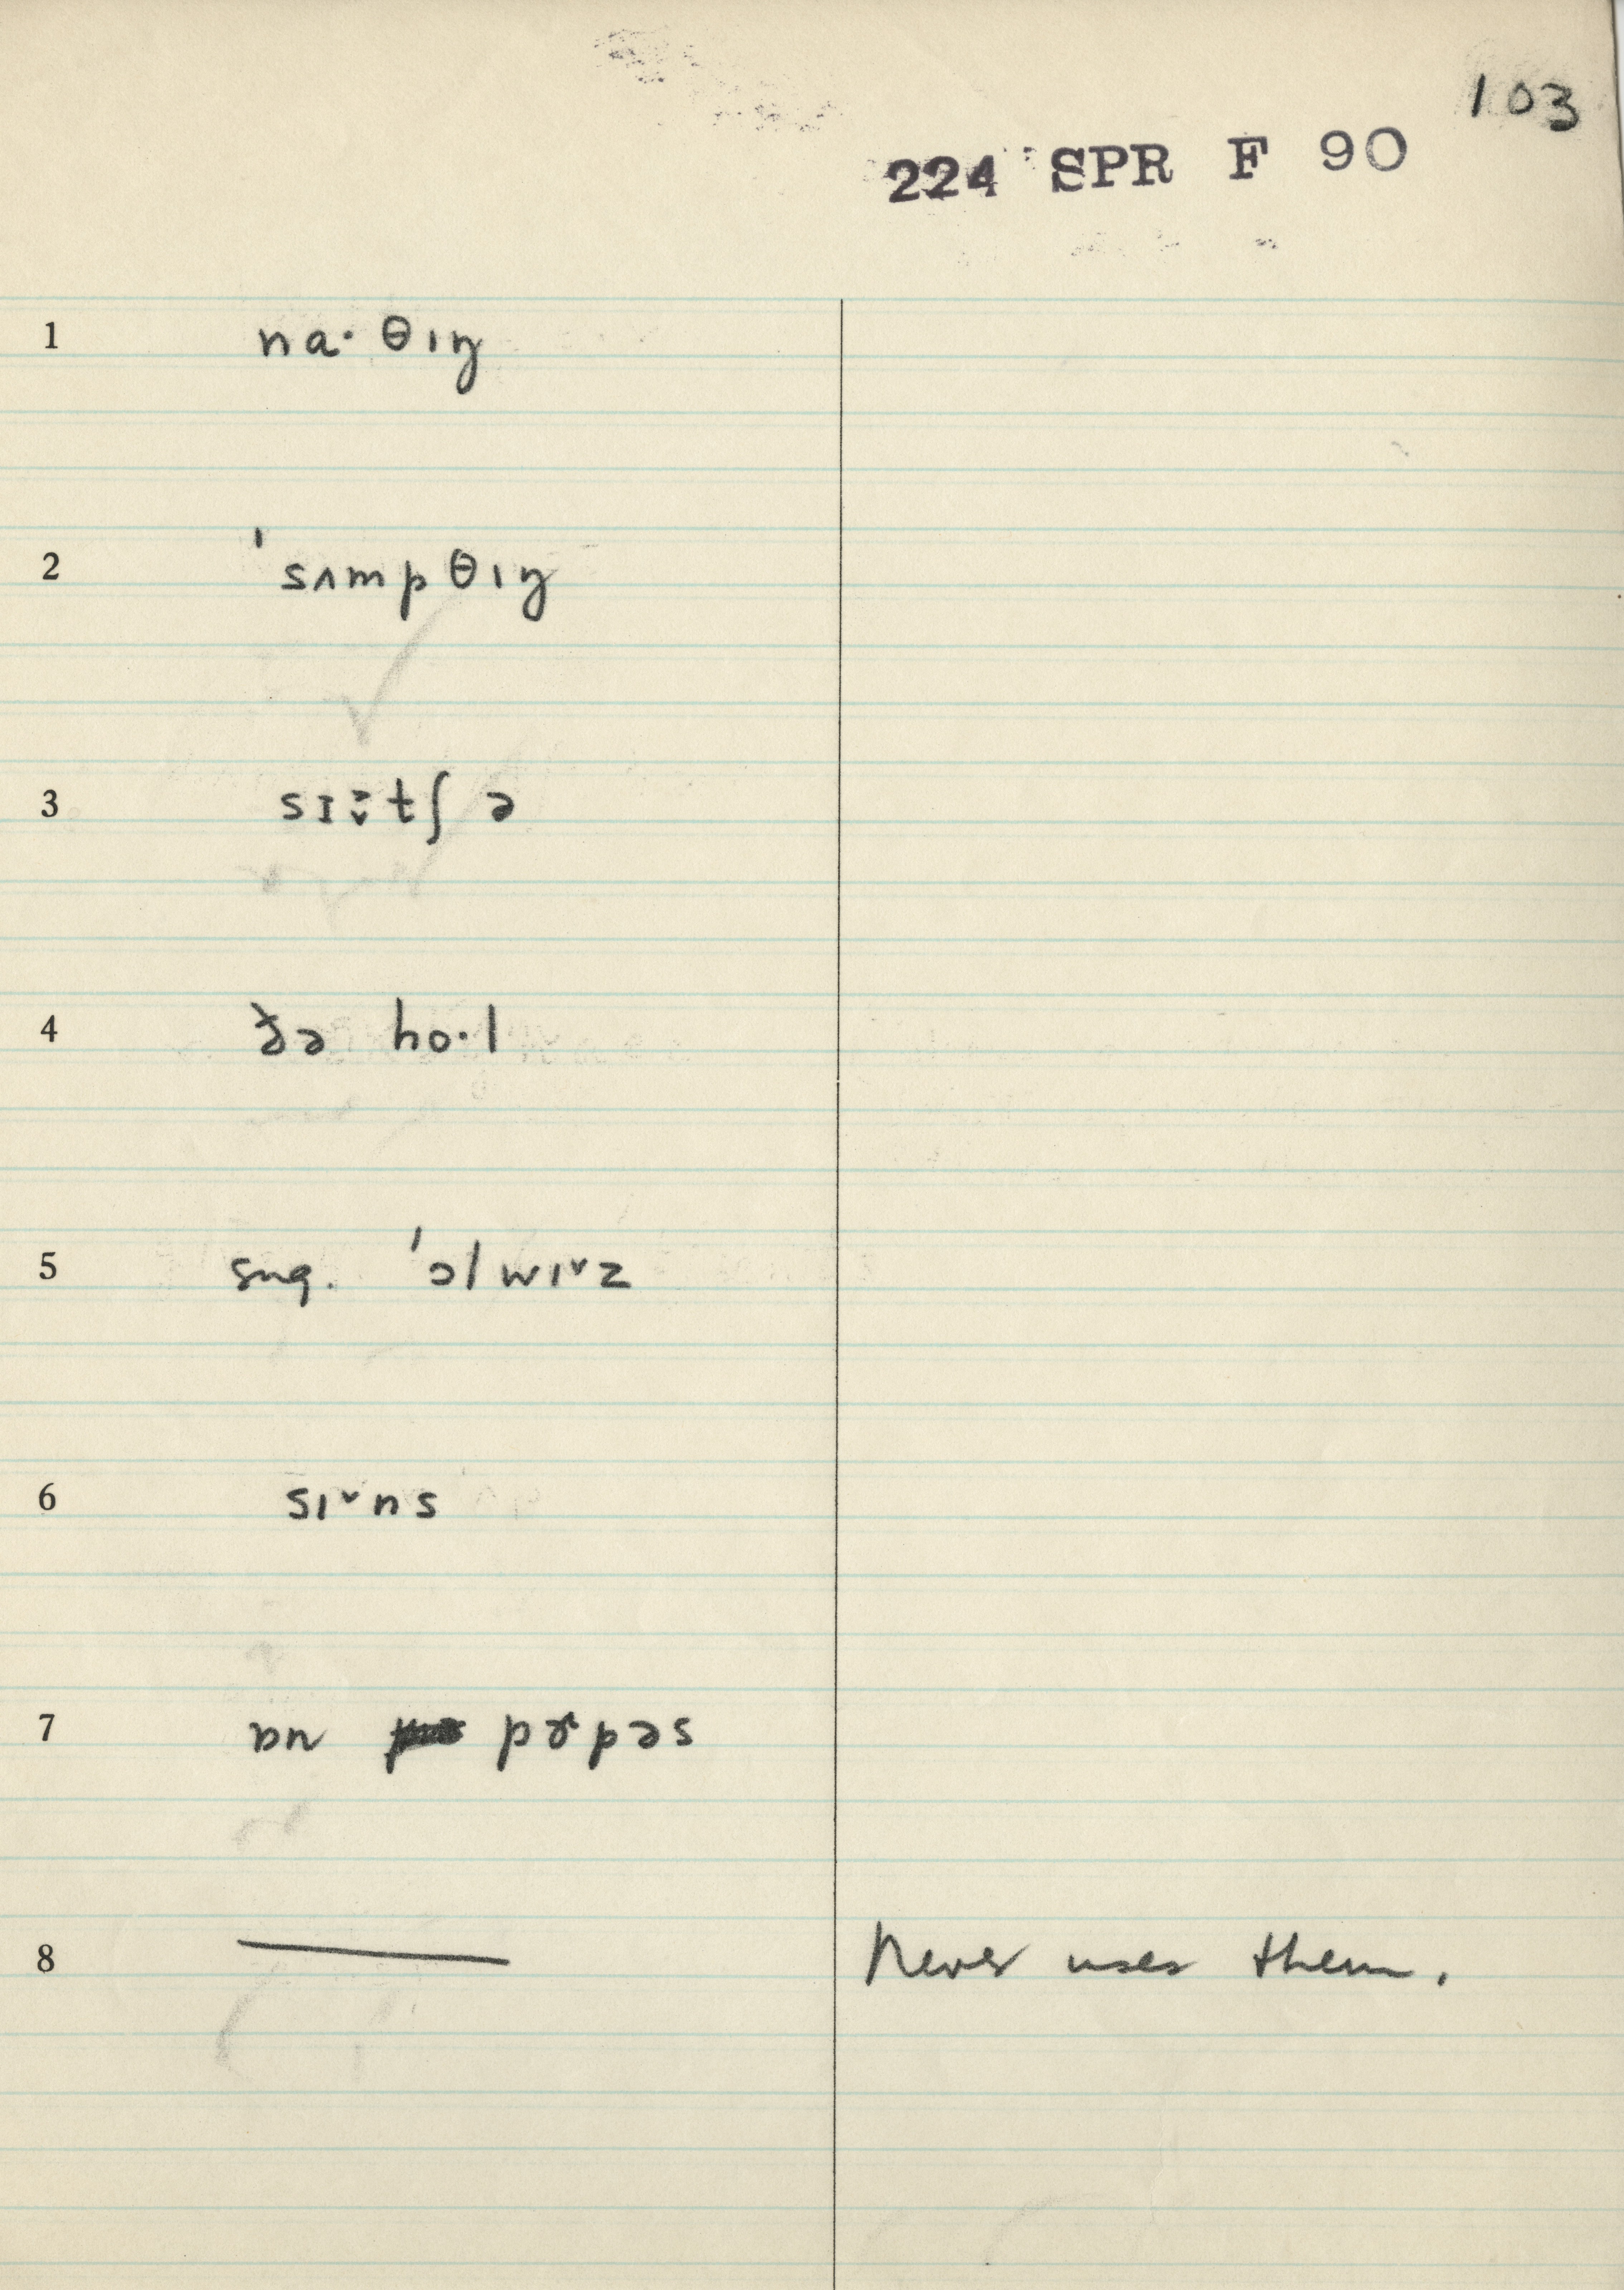 103
224 SPR F 90
1 na· θɪŋ
2 ˈsʌmpθɪŋ
3 sɪ:tʃ ə
4 ðə ho·l
5 sug. ˈɔlwɪ˅z
6 sɪ˅ns
7 ɒn pɚpəs
8 — Never uses them.